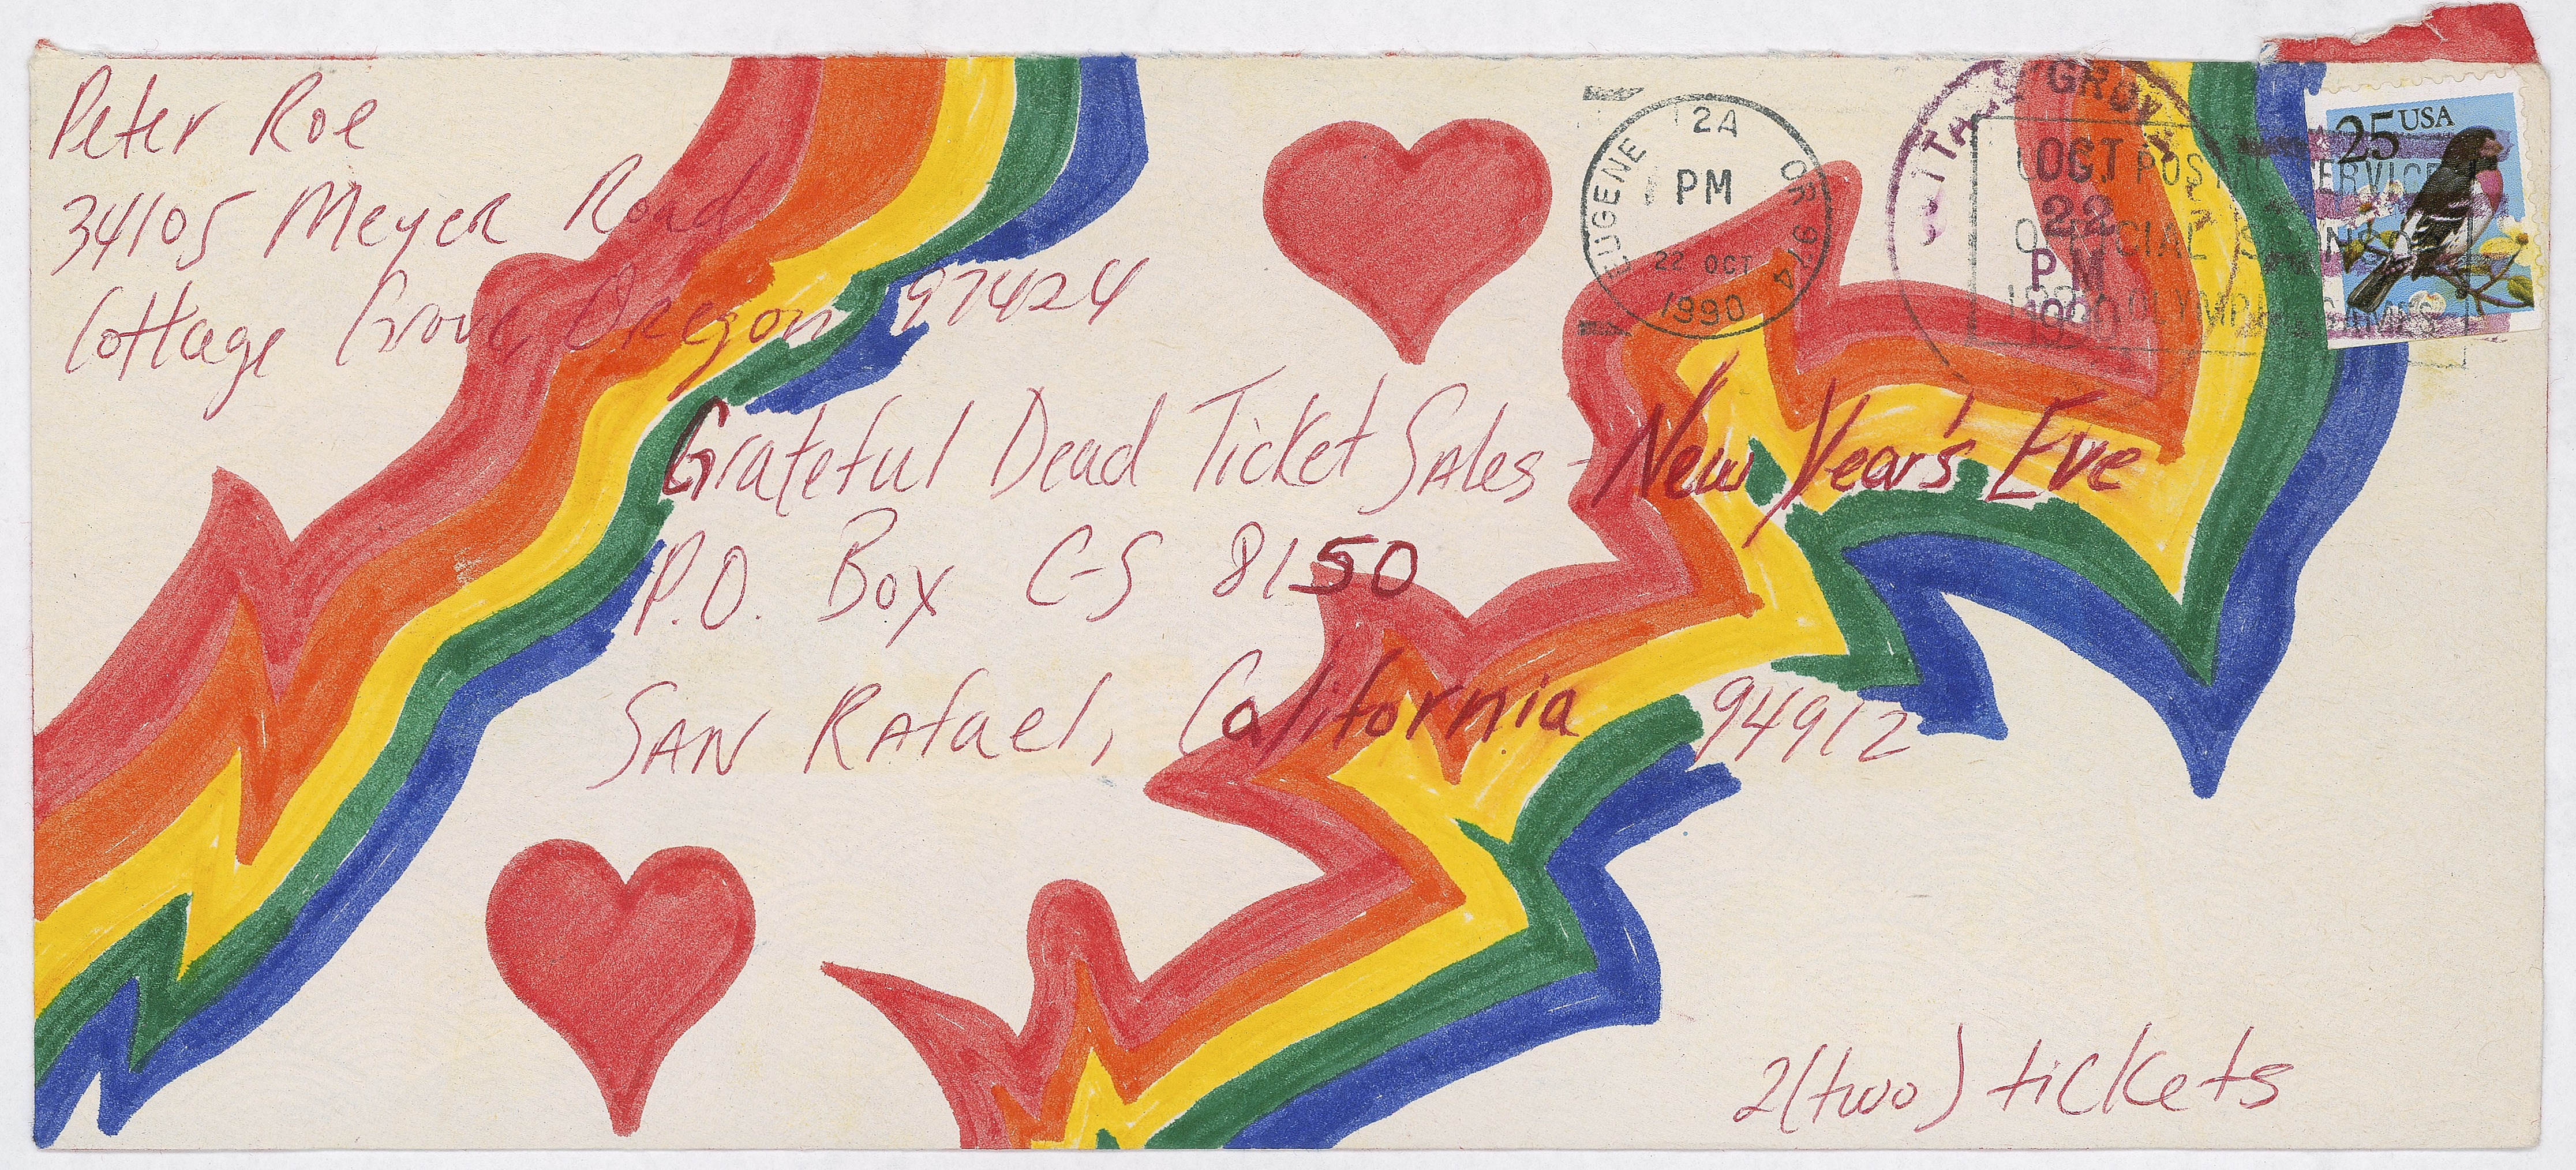 Peter Roe
34105 Meyer Road
Cottage Grove Oregon 97424
Grateful Dead Ticket Sales - New Year's Eve
P.O. Box C-S 8150
SAN RAfael, California 94912
2(two) tickets
EUGENE OR 974
2A
PM
22 OCT
1990
OCT
22
PM
1990
POSTAL SERVICE
OFFICIAL SPONSOR
OLYMPIC GAMES
25 USA